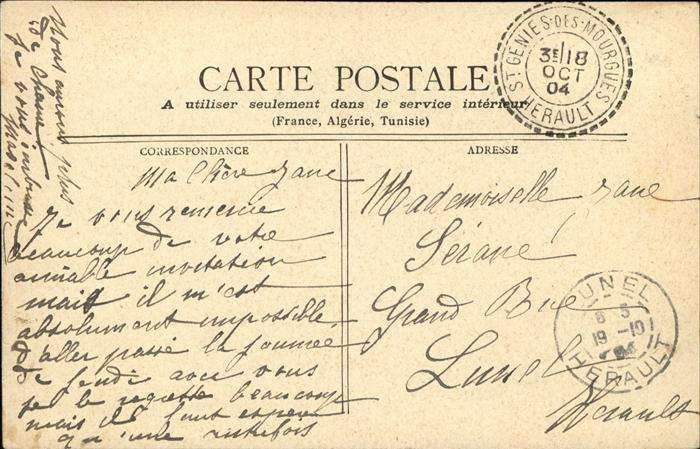 CARTE POSTALE
A utiliser seulement dans le service intérieur
(France, Algérie, Tunisie)
CORRESPONDANCE
Ma Chère Jane
Je vous remercie
beaucoup de votre
aimable invitation
mais il m'est
absolument impossible
d'aller passé la journeé
de jeudi avec vous
je le regrette beaucoup
mais il faut espérer
qu'une autre fois
Nous aurons plus
de chance.
Je vous embrasse
ADRESSE
Mademoiselle Jane
Sérane
Grand Rue
Lunel
Hérault
ST GENIES-DES-MOURGUES
3E 18
OCT
04
HERAULT
LUNEL
19 -10
04
HERAULT